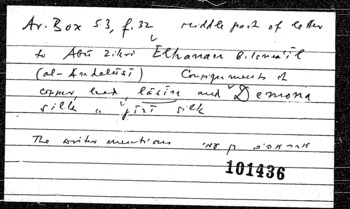 Ar. Box 53, f. 32 middle part of letter
to Abū Zikrī Elhanan b. Ismaʿīl
(al-Andalusī) Consignments of
copper, lead lāsīn and Demona
silk silk
The writer mentions
101436